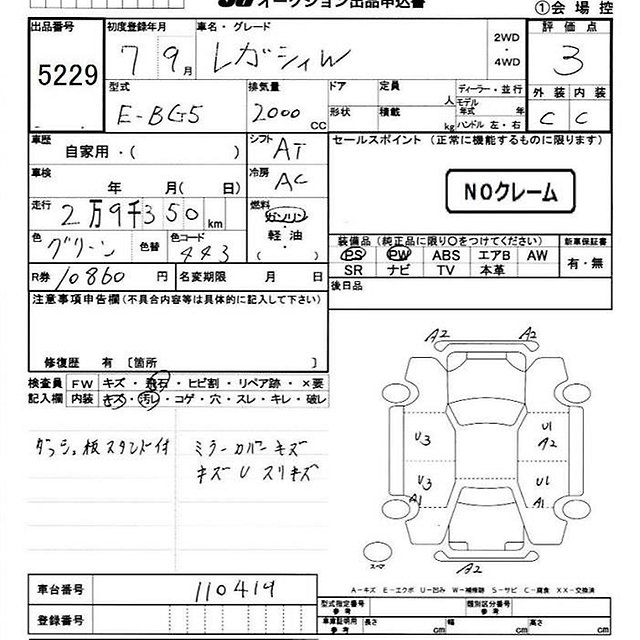 オークション出品申込書
①会場控
出品番号 初度登録年月 車名・グレード 評価点
5229 7 9月 レガシィW 2WD・4WD 3
型式 排気量 ドア 定員 人 ディーラー・並行 外装 内装
E-BG5 2000cc 形状 積載 kg モデル年式 年 ハンドル 左・右 C C
車歴 シフト セールスポイント (正常に機能するものに限ります)
自家用・( ) AT
車検 冷房
年 月( 日) AC NOクレーム
走行 燃料
2万9千350km ガソリン
色 色替 色コード 軽油
グリーン 443 ( )
装備品(純正品に限り○をつけてください) 新車保証書
PS PW ABS エアB AW 有・無
SR ナビ TV 本革
R券 10860円 名変期限 月 日 後日品
注意事項申告欄(不具合内容等は具体的に記入して下さい)
修復歴 有 〔箇所 〕
検査員 FW キズ・飛石・ヒビ割・リペア跡・×要
記入欄 内装 キズ・汚レ・コゲ・穴・スレ・キレ・破レ
ダッシュ板スタンド付 ミラーカバーキズ
キズ U スリキズ
A2 A2
U3 U1
A2
U3 U1
A1 A1
A2
スーマ
A-キズ E-エクボ U-凹み W-補修跡 S-サビ C-腐食 XX-交換済
車台番号 110419
登録番号
型式指定番号 参考 類別区分番号 参考
車庫証明用 参考 長さ cm 幅 cm 高さ cm